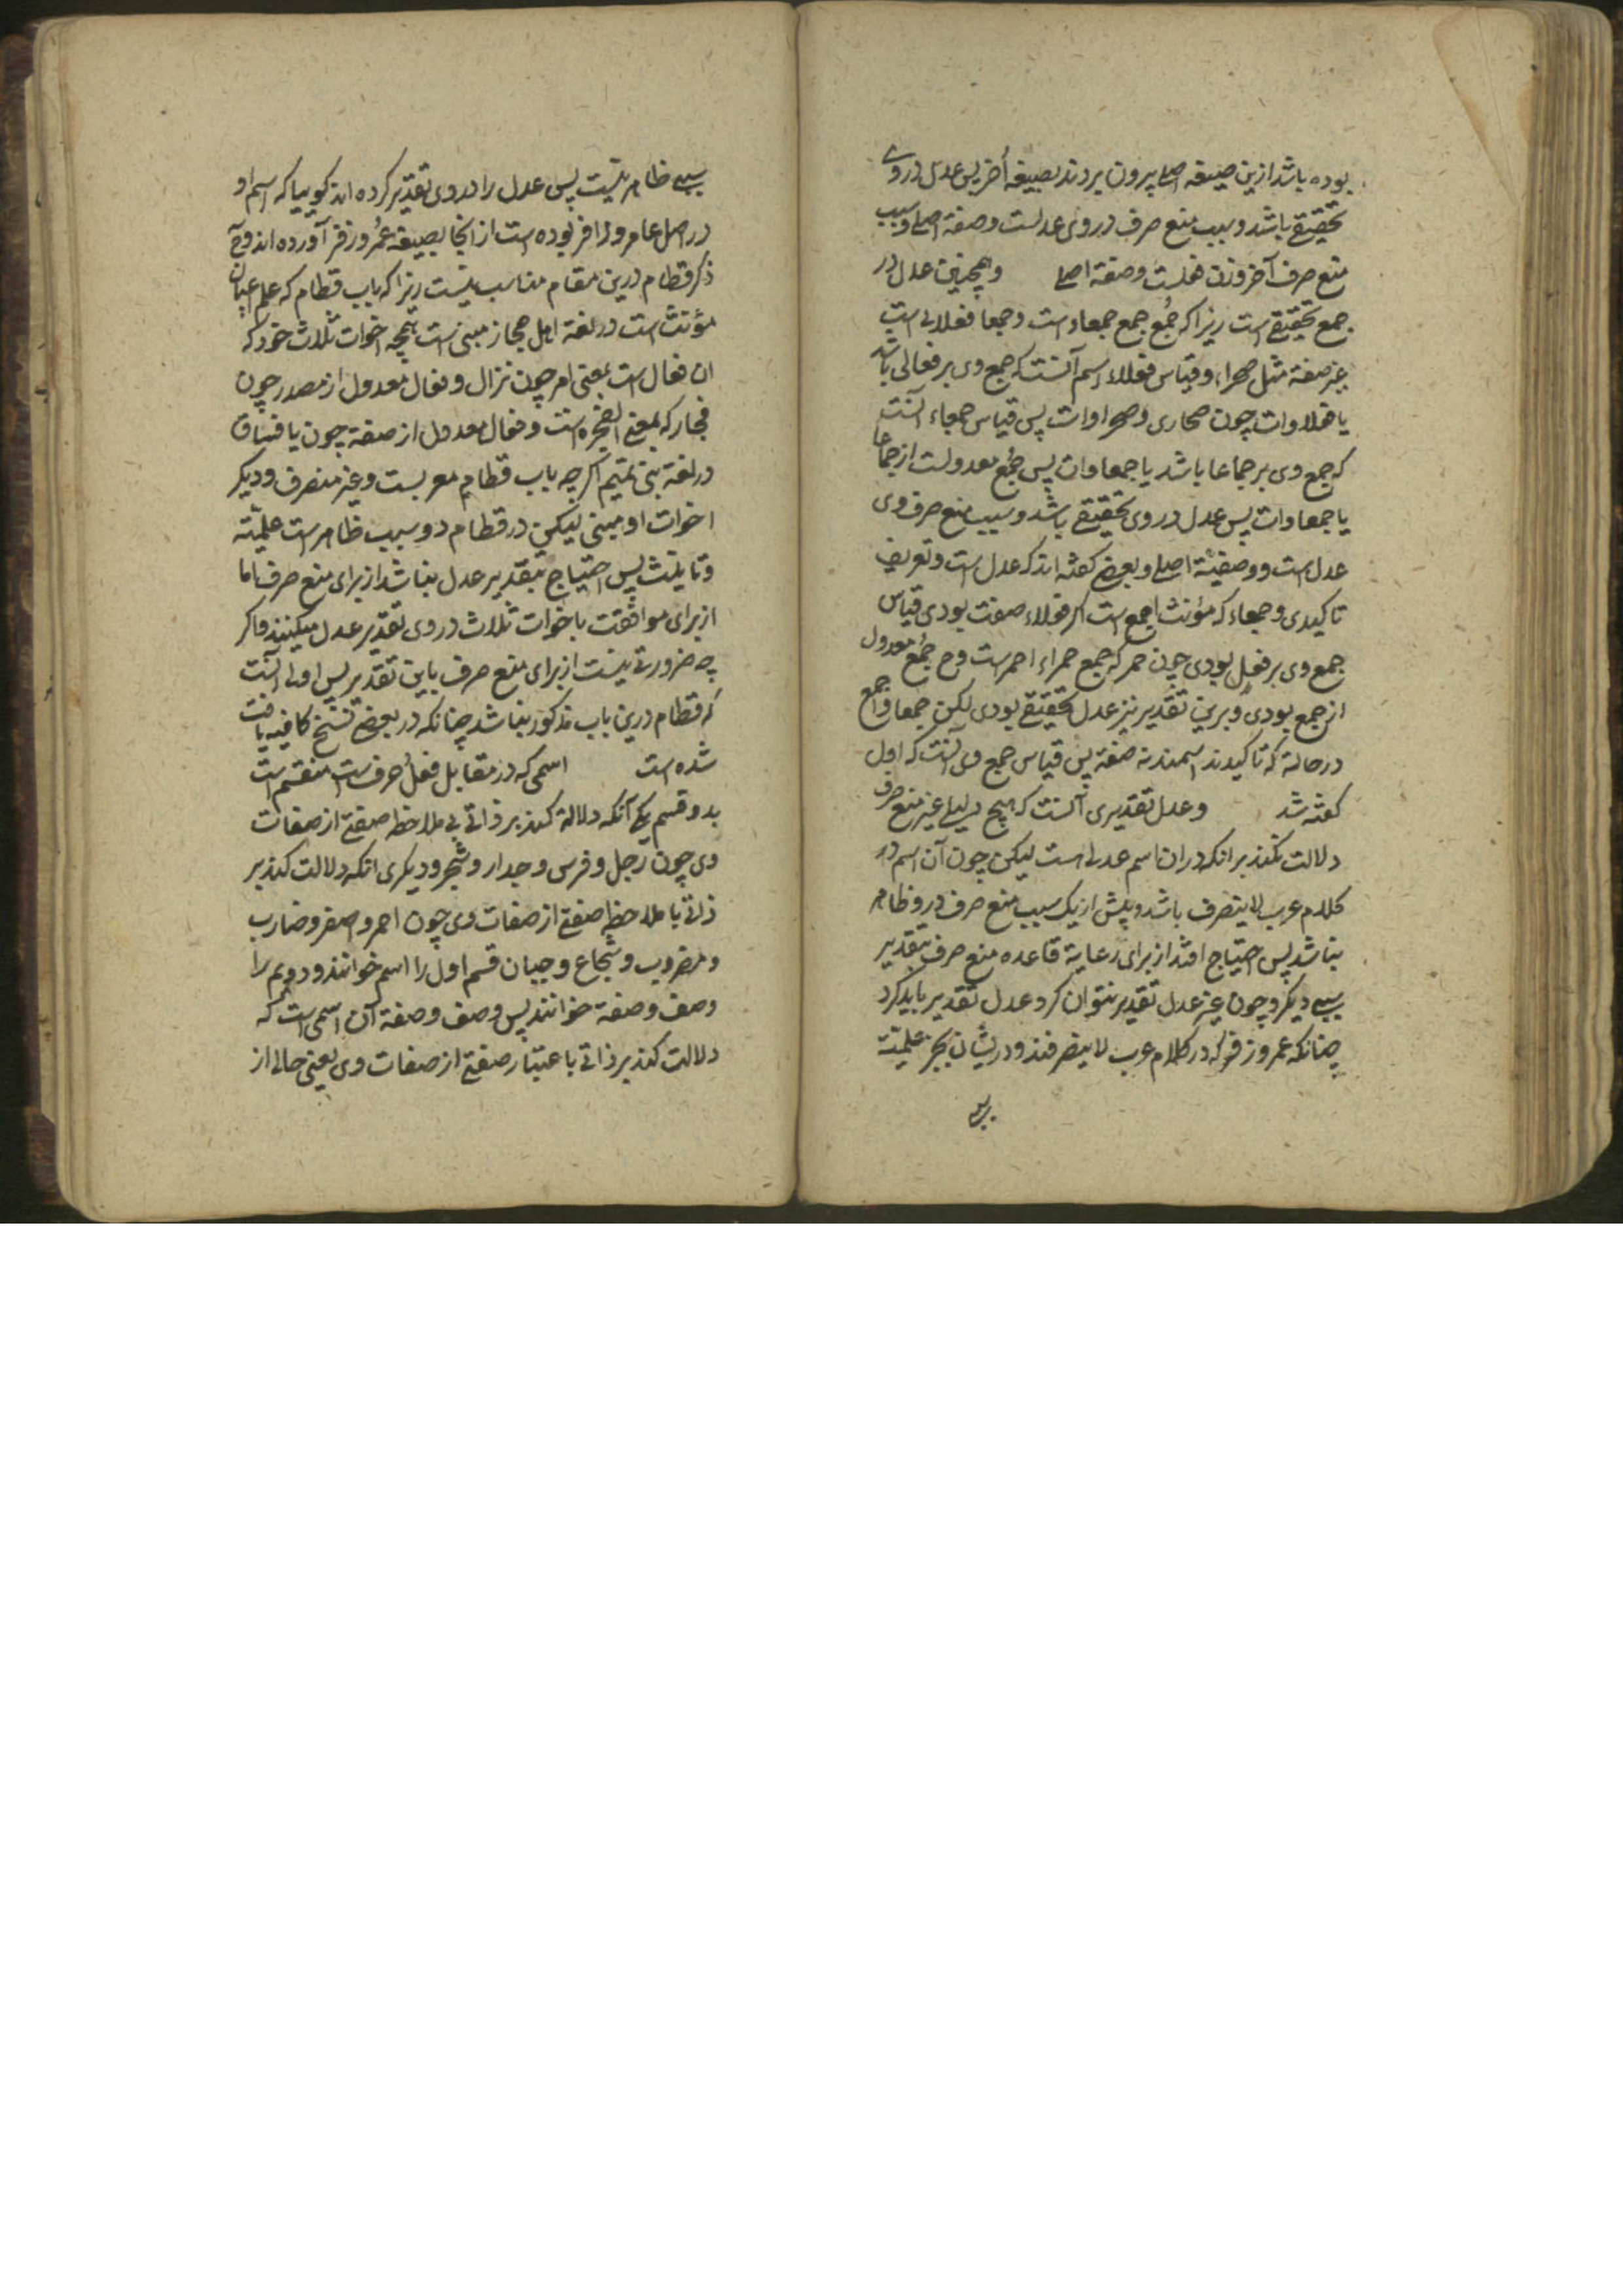 بوده باشد ازین صیغه اصلے بیرون بردند بصیغه أخر پس عدل در وے
تحقیقے باشد و سبب منع صرف در وی عدلست و صفة اصلے و سبب
منع صرف آخر وزن فعلست و صفة اصلے و همچنین عدل در
جمع تحقیقے است زیرا که جُمع جمع جمعاء است و جمعا فعلایی است
غیر صفة مثل صحراء و قیاس فعلاء اسم آنست که جمع وی بر فعالی باشد
یا فعلاوات چون صحاری و صحراوات پس قیاس جمعاء آنست
که جمع وی بر جماعا باشد یا جمعاوات پس جُمع معدولست از جماعا
یا جمعاوات پس عدل در وی تحقیقے باشد و سبب منع صرف وی
عدل است و وصفیة اصلے و بعضے کفته اند که عدل است و تعریف
تاکیدی و جمعاء که مؤنث اجمع است اکر فعلاء صفت بودی قیاس
جمع وی بر فعل بودی چون حمر که جمع حمراء احمر است و ح جُمع معدول
از جمع بودی و برین تقدیر نیز عدل تحقیقے بودی لکن جمعا و اجمع
در حالة که تاکیدند اسمند نه صفة پس قیاس جمع وی آنست که اول
کفته شد و عدل تقدیری آنست که هیچ دلیلے غیر منع صرف
دلالت نکند بر انکه دران اسم عدلے است لیکن چون آن اسم در
کلام عرب لا ینصرف باشد و بیش از یک سبب منع صرف در و ظاهر
نباشد پس احتیاج افتد از برای رعایة قاعده منع صرف بتقدیر
سببے دیکر و چون غیر عدل تقدیر نتوان کرد عدل تقدیر باید کرد
چنانکه عمر و زفر که در کلام عرب لا ینصرفند و دریشان بجز علمیّة
سببے ظاهر نیست پس عدل را در وی تقدیر کرده اند کوییا که اسم او
در اصل عامر و زافر بوده است از انجا بصیغه عُمر و زفر آورده اند و ح
ذکر قطام درین مقام مناسب نیست زیرا که باب قطام که علم اعیان
مؤنث است در لغة اهل حجاز مبنی است همچه اخوات ثلاث خود که
ان فعال است بمعنی امر چون نزال و فعال معدول از مصدر چون
فجار که بمعنے الفجره است و فعال معدول از صفة چون یا فساق
در لغة بنی تمیم اکر چه باب قطام معربست و غیر منصرف و دیکر
اخوات او مبنی لیکن در قطام دو سبب ظاهر است علمیّة
و تانیث پس احتیاج بتقدیر عدل نباشد از برای منع صرف اما
از برای موافقت باخوات ثلاث در وی تقدیر عدل میکنند و اکر
چه ضرورتے نیست از برای منع صرف باین تقدیر پس اولی آنست
که قطام درین باب مذکور نباشد چنانکه در بعضے نسخ کافیه یافت
شده است اسمی که در مقابل فعل و حرف است منقسم است
بدو قسم یکے آنکه دلالة کند بر ذاتے بی ملاحظه صفتے از صفات
وی چون رجل و فرس و جدار و شجر و دیکری انکه دلالت کند بر
ذاتے با ملاحظه صفتے از صفات وی چون احمر و اصفر و ضارب
و مضروب و شجاع و جبان قسم اول را اسم خوانند و دویم را
وصف و صفة خوانند پس وصف و صفة آن اسمی است که
دلالت کند بر ذاتے باعتبار صفتے از صفات وی یعنی حالے از